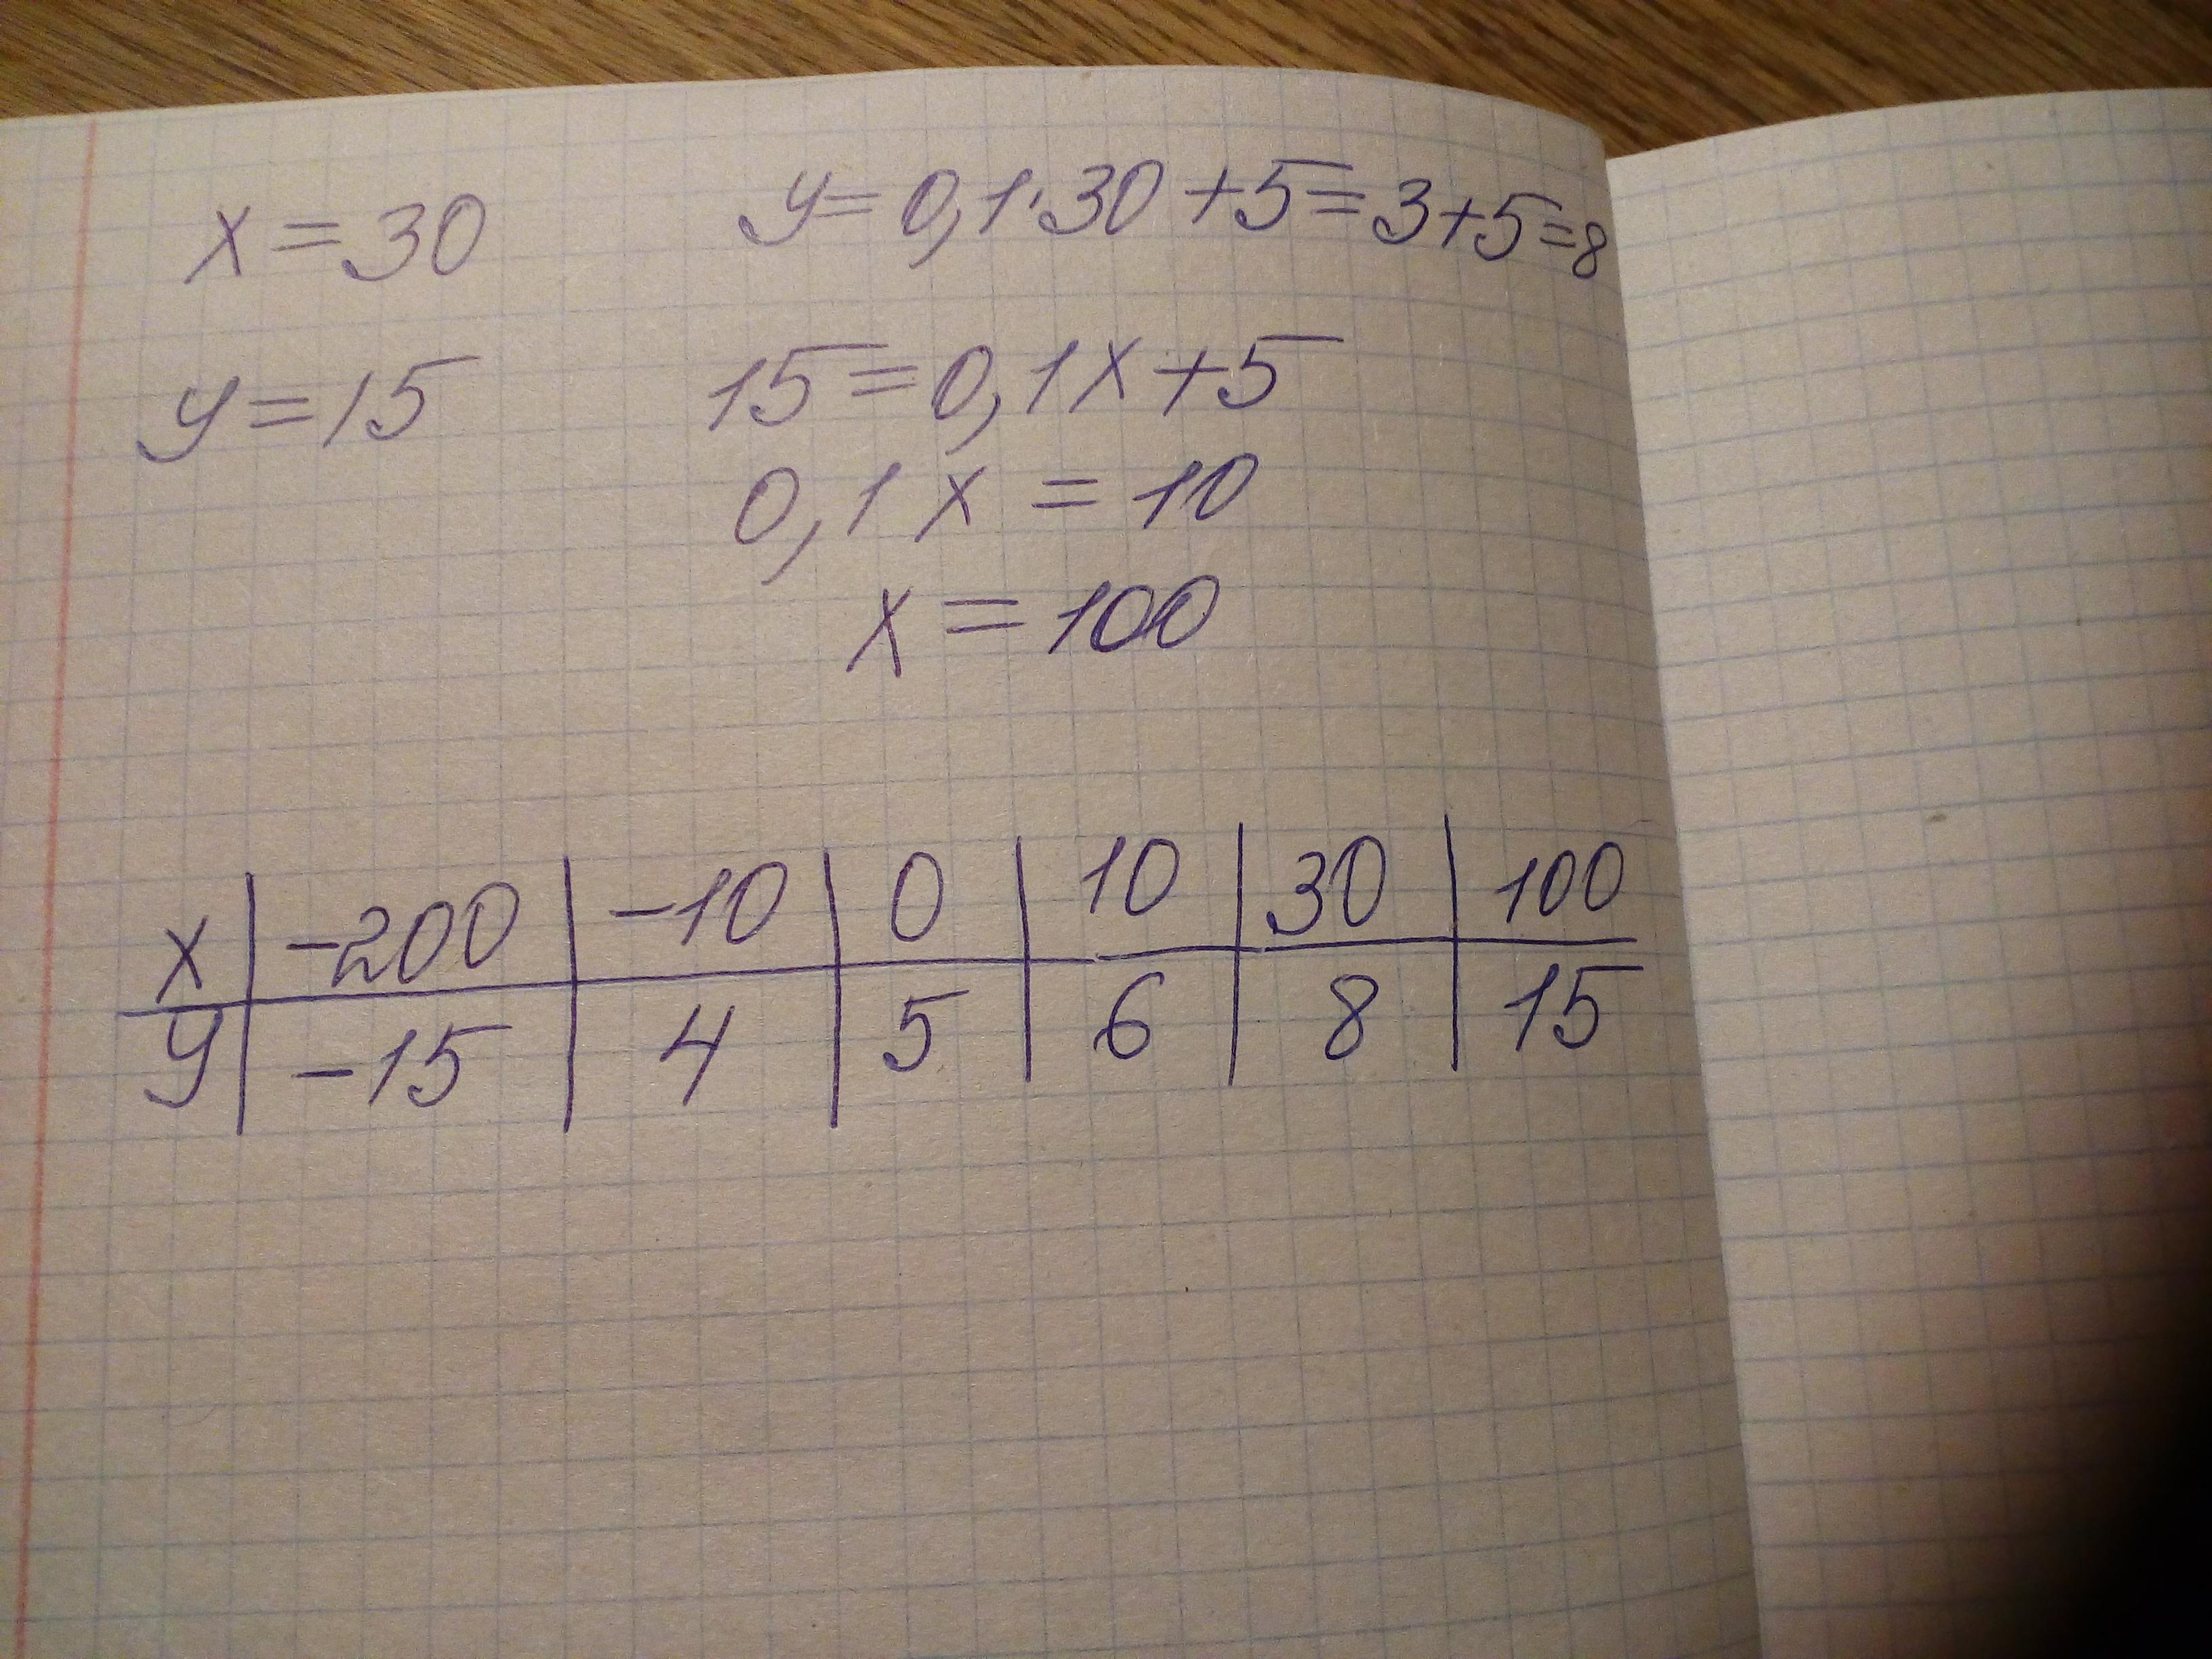 x = 30 y = 0,1·30 + 5 = 3 + 5 = 8
y = 15 15 = 0,1x + 5
0,1x = 10
x = 100
x | -200 | -10 | 0 | 10 | 30 | 100
y | -15 | 4 | 5 | 6 | 8 | 15